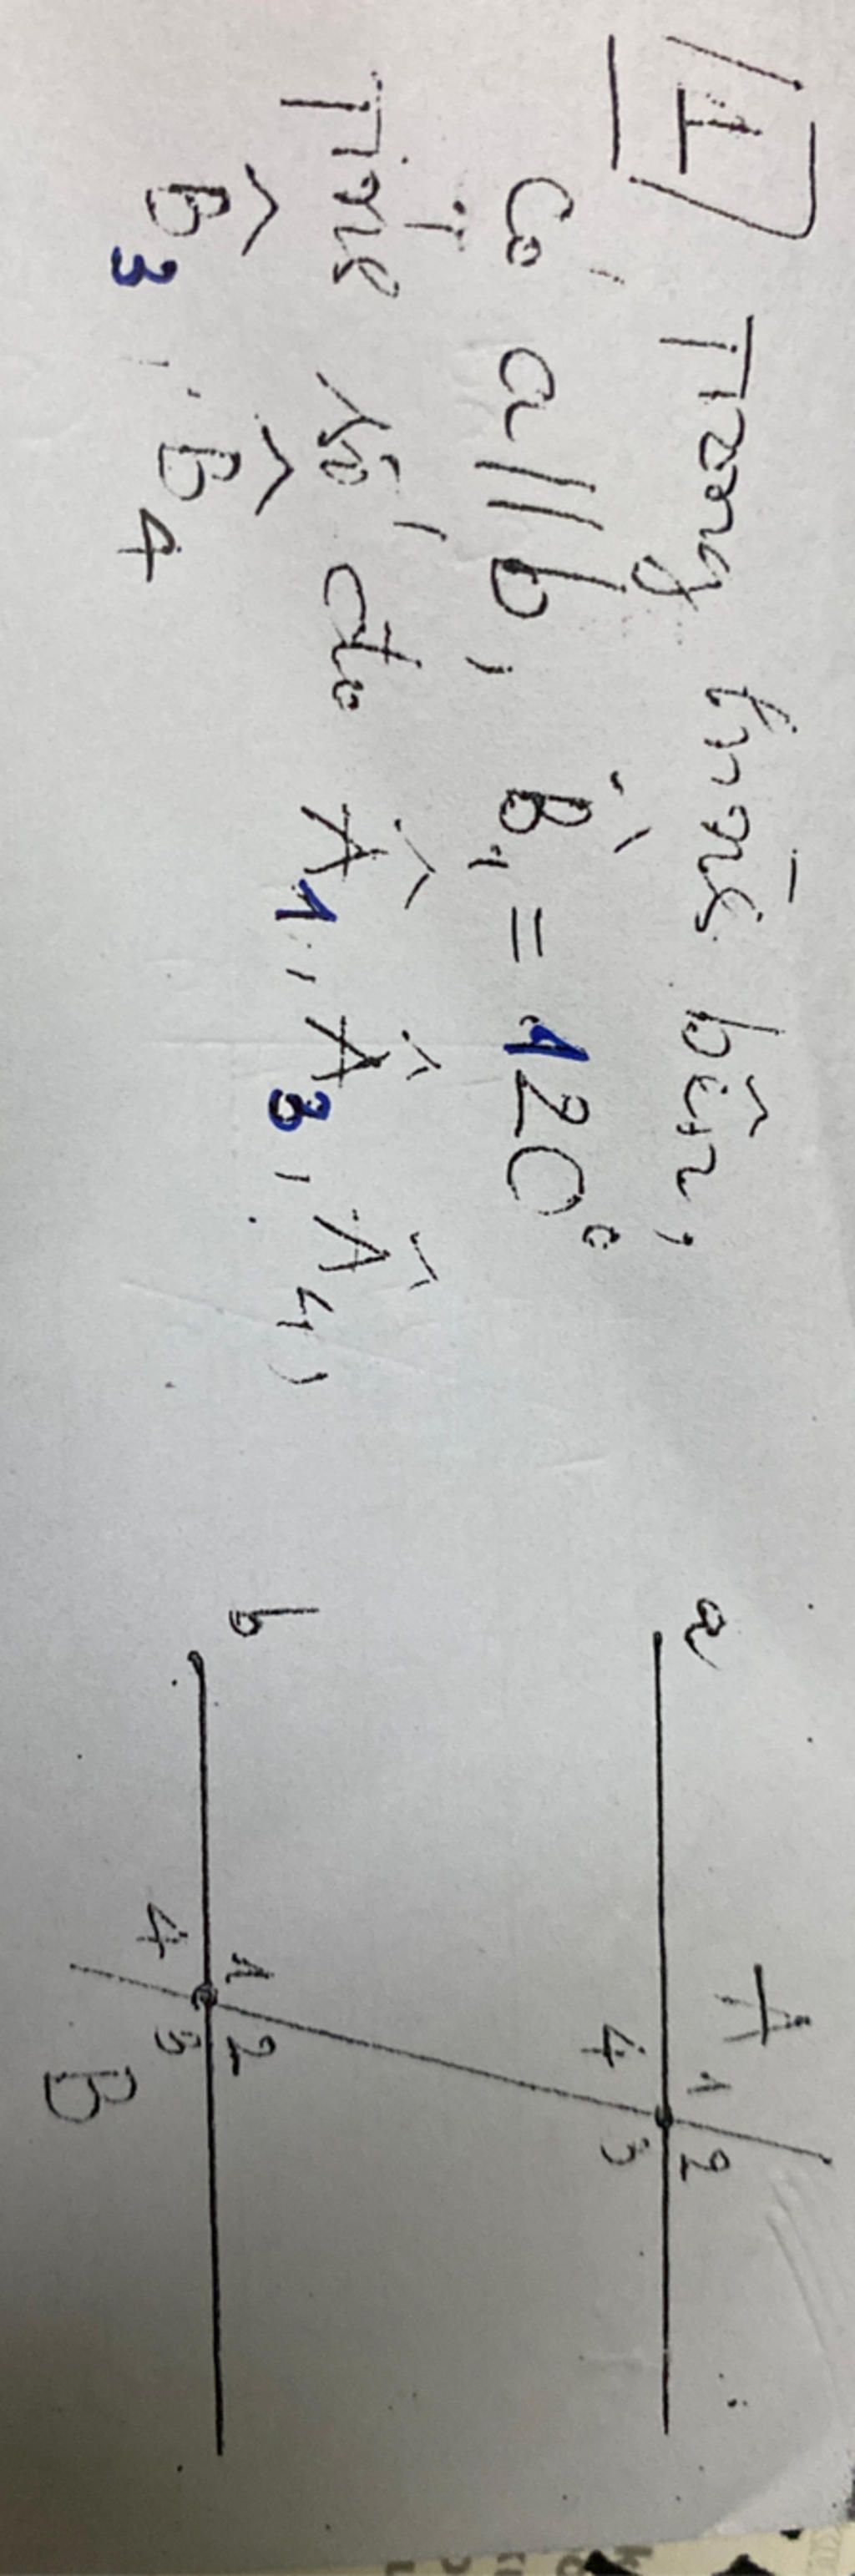 1 Trong hình bên,
có a // b, B̂₁ = 120°
Tính số đo Â₁, Â₃, Â₄,
B̂₃, B̂₄
a
A
1 2
4 3
b
1 2
4 3
B